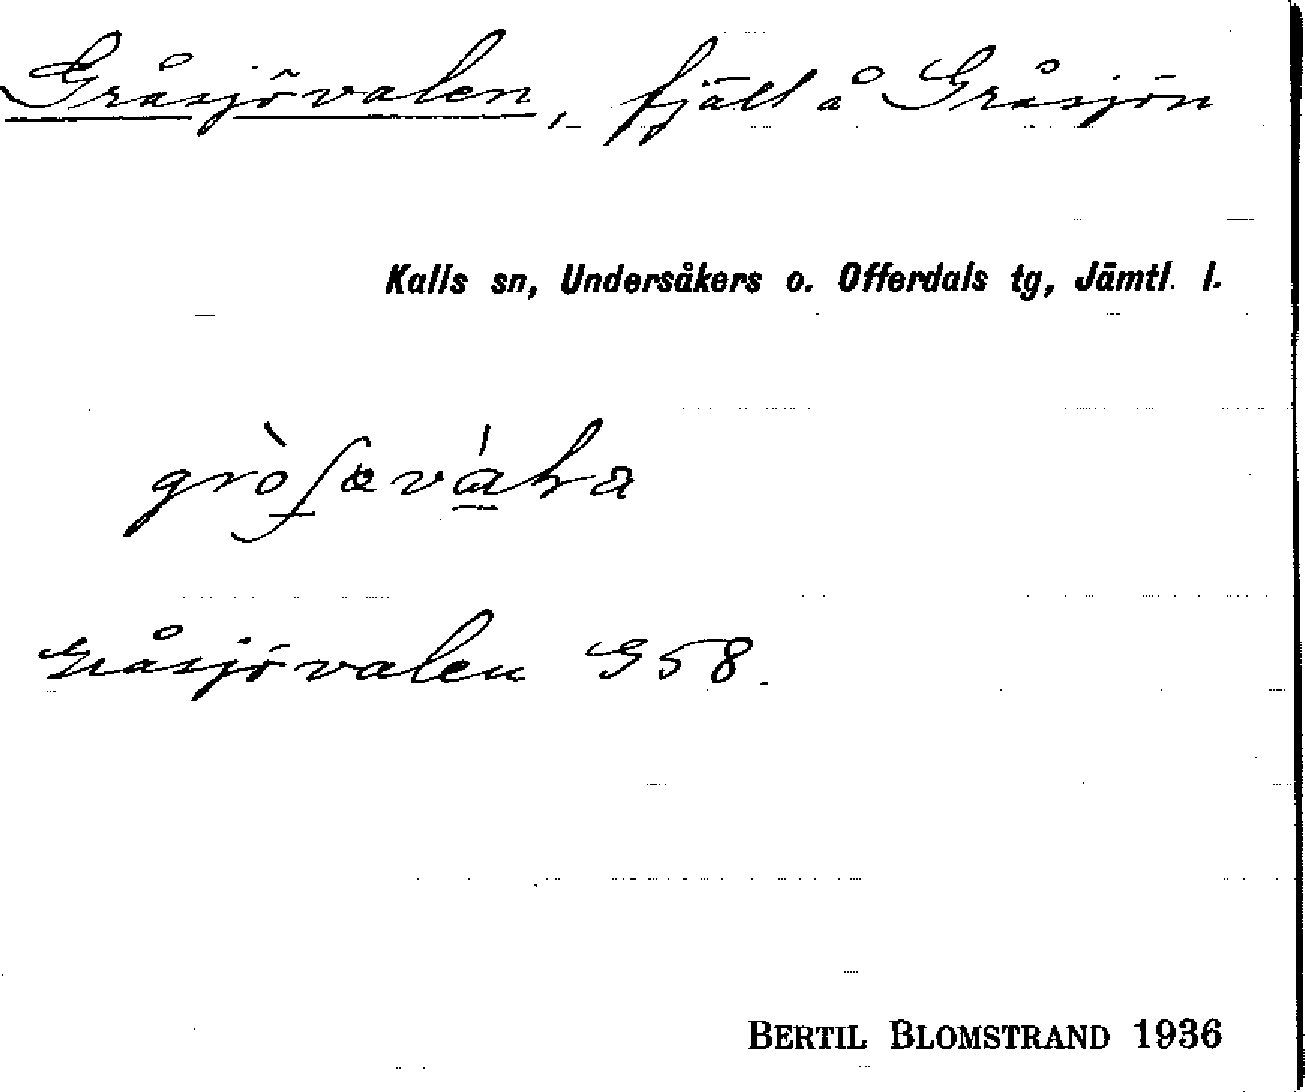 Gråsjövalen, fjäll å Gråsjön
Kalls sn, Undersåkers o. Offerdals tg, Jämtl. l.
Gråsjövalen G58.
BERTIL BLOMSTRAND 1936